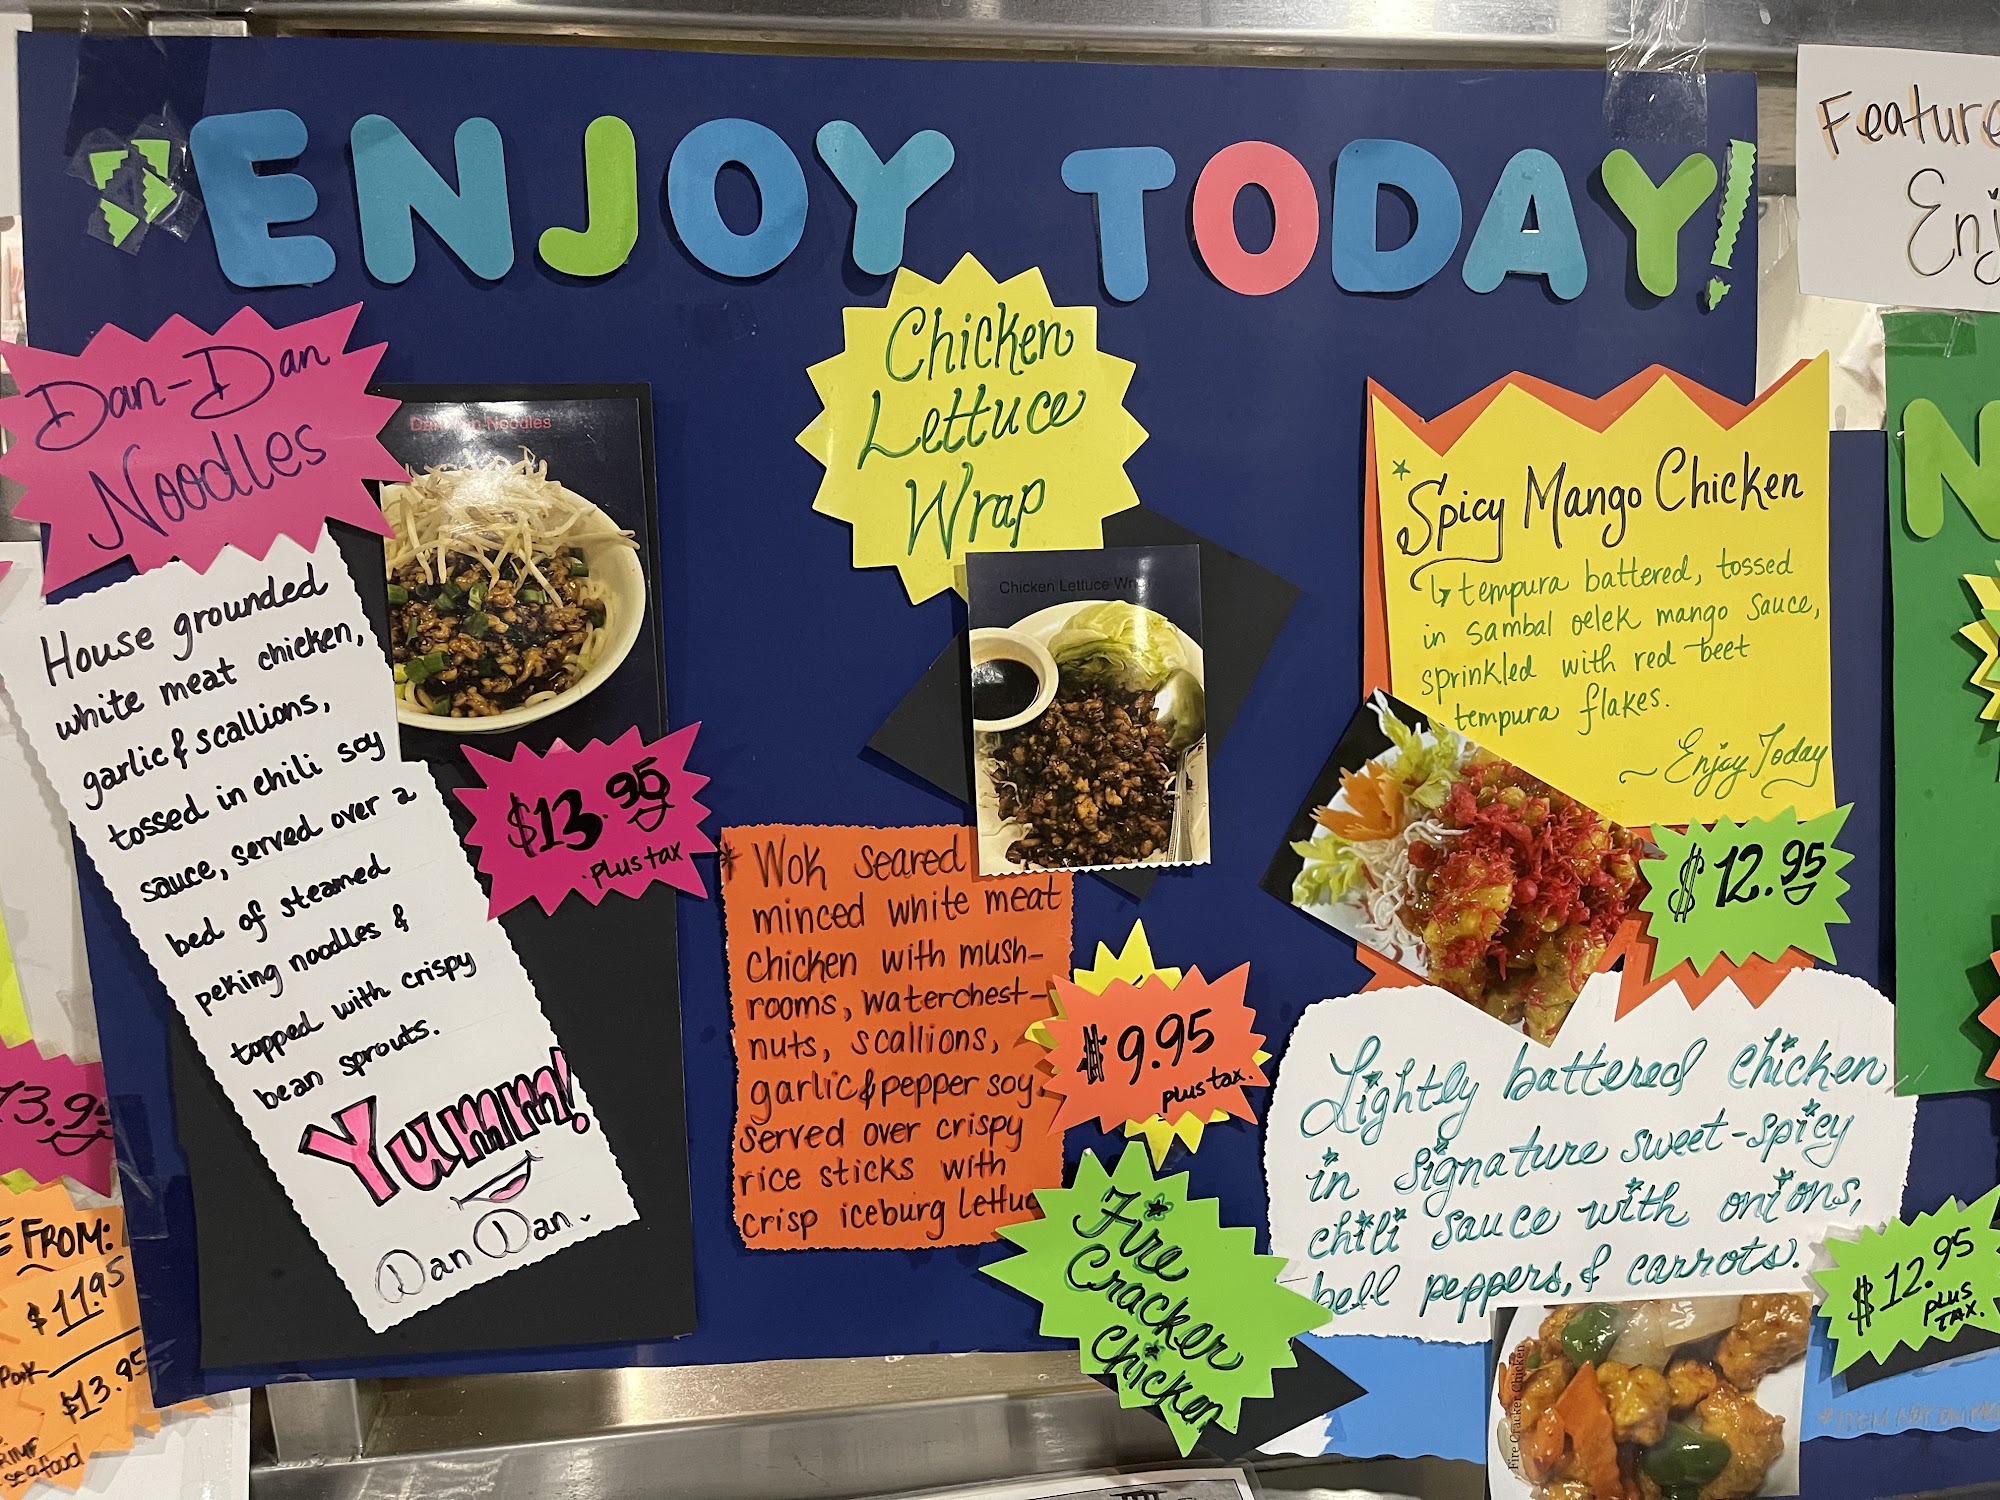 ENJOY TODAY!
Dan-Dan
Noodles
Dan Dan Noodles
House grounded
white meat chicken,
garlic & scallions,
tossed in chili soy
sauce, served over a
bed of steamed
peking noodles &
topped with crispy
bean sprouts.
Yumm!
Dan Dan.
$13.95
plus tax
Chicken
Lettuce
Wrap
Chicken Lettuce Wrap
* Wok seared
minced white meat
chicken with mush-
rooms, waterchest-
nuts, scallions,
garlic & pepper soy.
served over crispy
rice sticks with
crisp iceburg Lettuc
$9.95
plus tax.
Spicy Mango Chicken
tempura battered, tossed
in sambal oelek mango sauce,
sprinkled with red beet
tempura flakes.
~ Enjoy Today
$12.95
Fire
Cracker
Chicken
Lightly battered chicken
in signature sweet-spicy
chili sauce with onions,
bell peppers, & carrots.
$12.95
PLUS
TAX.
Fire Cracker Chicken
Feature
Enj
N
13.95
FROM:
$11.95
Pork
$13.95
seafood